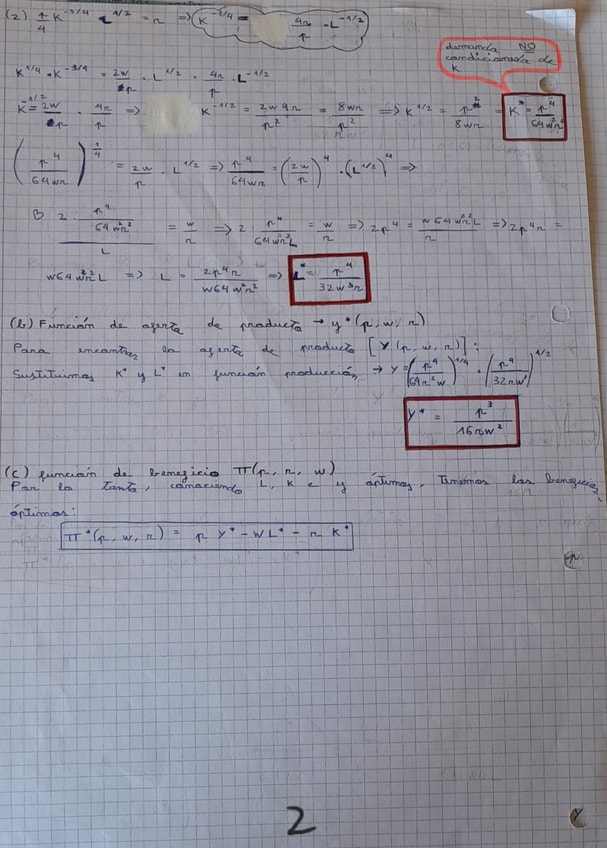 (2) p/4 K^-3/4 L^1/2 = r => K^-3/4 = 4r/p · L^-1/2
demanda NO
condicionada de
K
K^1/4 · K^-3/4 = 2w/p · L^1/2 · 4r/p · L^-1/2
K^-1/2 = 2w/p · 4r/p => K^-1/2 = 2w4r/p² = 8wr/p² => K^1/2 = p²/8wr = K* = p^4/64w²r²
(p^4/64wr)^1/4 = 2w/p · L^1/2 => p^4/64wr = (2w/p)^4 · (L^1/2)^4 =>
2 · p^4/64w²r² / L = w/r => 2 · p^4/64w²r²L = w/r => 2p^4 = w64w²r²L/r => 2p^4r =
w64w²r²L => L = 2p^4r/w64w²r² => L* = p^4/32w³r
(b) Función de oferta de producto → y*(p, w, r)
Para encontrar la oferta de producto [Y(p, w, r)]:
Sustituimos K* y L* en función producción → Y = (p^4/64r²w)^1/4 · (p^4/32rw³)^1/2
Y* = p³/16rw²
(c) función de beneficio π(p, r, w)
Por lo tanto, conociendo L, K e y óptimos, Tenemos los beneficios
óptimos:
π*(p, w, r) = p Y* - wL* - r K*
2